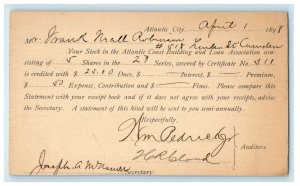 Atlantic City, April 1 189
Mr Frank
# 518 Linden St Camden
Your Stock in the Atlantic Coast Building and Loan Association con-
sisting of 5 Shares in the 27 Series, covered by Certificate No. 311
is credited with $ 25.00 Dues. $ Interest. $ Premium.
$ Expense, Contribution and $ Fines. Please compare this
Statement with your receipt book and if it does not agree with your receipts, advise
the Secretary. A statement of this kind will be sent to you semi-annually.
Respectfully,
Wm
Auditors.
Joseph A.
Secretary.